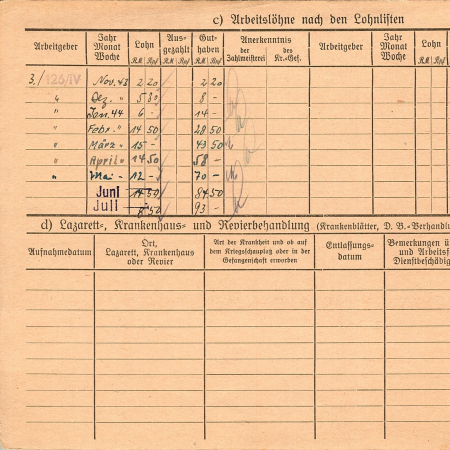 c) Arbeitslöhne nach den Lohnlisten
Arbeitgeber Jahr Monat Woche Lohn R.M. Rpf Ausgezahlt R.M. Rpf Guthaben R.M. Rpf Anerkenntnis der Zahlmeisterei des Kr.-Gef. Arbeitgeber Jahr Monat Woche Lohn R.M. Rpf
3./126/IV Nov. 43 2 20 2 20
" Dez. " 5 80 8 -
" Jan. 44 6 - 14 -
" Febr. " 14 50 28 50
" März " 15 - 43 50
" April " 14 50 58 -
" Mai - 12 - 70 -
Juni 14 50 84 50
Juli 8 50 93 -
d) Lazarett-, Krankenhaus- und Revierbehandlung (Krankenblätter, D. B.-Verhandl
Aufnahmedatum Ort, Lazarett, Krankenhaus oder Revier Art der Krankheit und ob auf dem Kriegsschauplatz oder in der Gefangenschaft erworben Entlassungsdatum Bemerkungen ü und Arbeitsf Dienstbeschädig